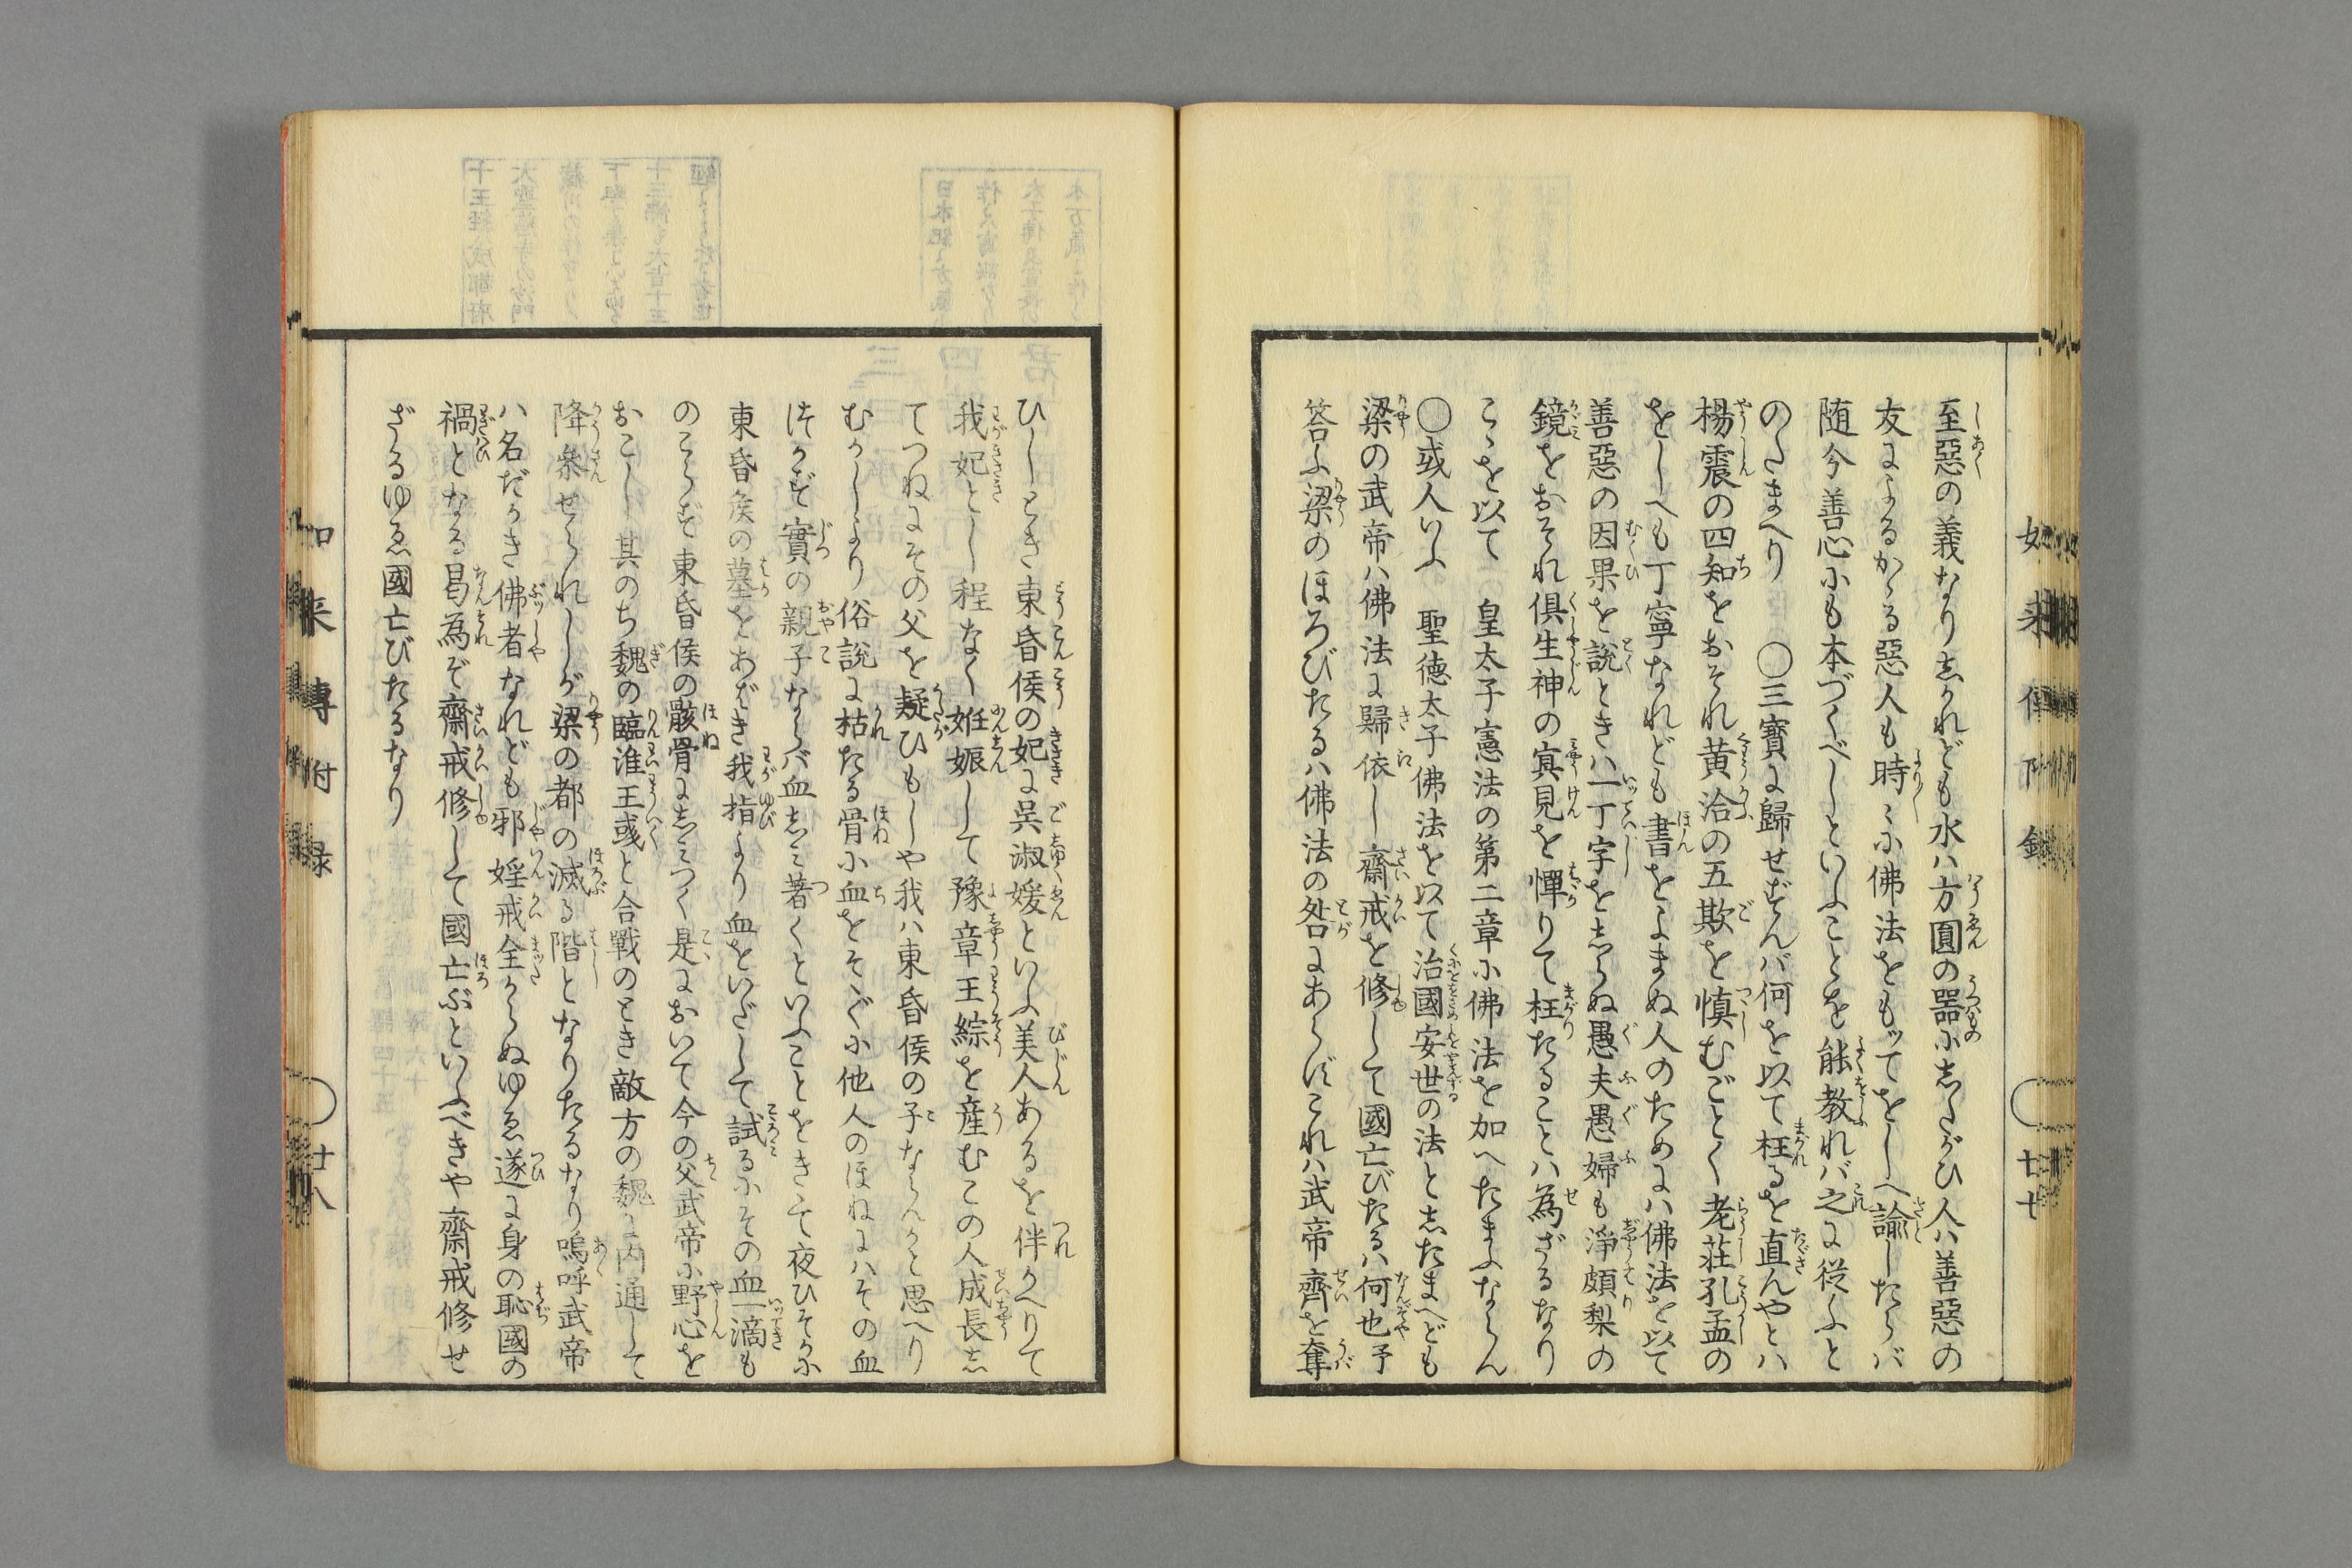 至惡の義なり志かれども水ハ方圓の器に志たがひ人ハ善惡の
友によるかゝる惡人も時〻に佛法をもッてをしへ諭したらバ
随今善心にも本づくべしといふことを能教れバ之に従ふと
のたまへり　〇三寳に歸せずんバ何を以て枉るを直んやとハ
楊震の四知をおそれ黄洽の五欺を慎むごとく老荘孔孟の
をしへも丁寧なれども書をよまぬ人のためにハ佛法を以て
善惡の因果を説ときハ一丁字を志らぬ愚夫愚婦も淨頗梨の
鏡をおそれ俱生神の冥見を憚りて枉たることハ為ざるなり
こゝを以て　皇太子憲法の第二章に佛法を加へたまふならん
〇或人いふ　聖徳太子佛法を以て治國安世の法と志たまへども
梁の武帝ハ佛法に歸依し齋戒を修して國亡びたるハ何也予
答ふ梁のほろびたるハ佛法の咎にあらずこれハ武帝齊を奪
如来傳附録　〇廿七
ひしとき東昏侯の妃に呉淑媛といふ美人あるを伴かへりて
我妃とし程なく姙娠して豫章王綜を産むこの人成長志
てつねにその父を疑ひもしや我ハ東昏侯の子ならんかと思へり
むかしより俗說に枯たる骨に血をそゝぐに他人のほねにハその血
はつかず實の親子ならバ血志み著くといふことをきゝて夜ひそかに
東昏侯の墓をあばき我指より血をいだして試るにその血一滴も
のこらず東昏侯の骸骨に志みつく是において今の父武帝に野心を
おこし其のち魏の臨淮王彧と合戰のとき敵方の魏に内通して
降参せられしが梁の都の滅る階となりたるなり嗚呼武帝
ハ名だかき佛者なれども邪婬戒全からぬゆゑ遂に身の恥國の
禍となる曷為ぞ齋戒修して國亡ぶといふべきや齋戒修せ
ざるゆゑ國亡びたるなり
如来傳附録　〇廿八